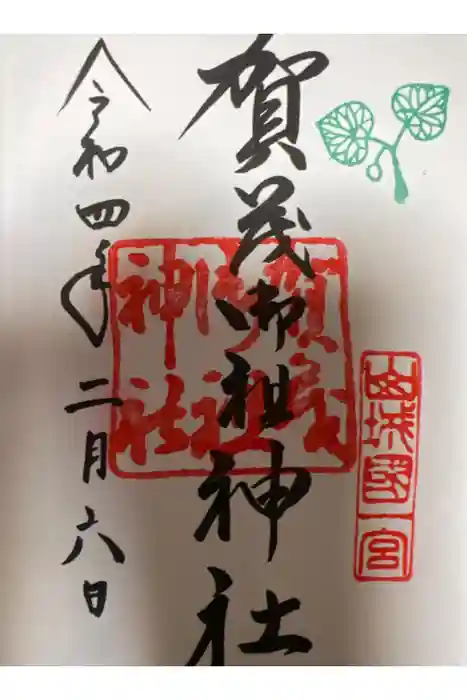 山城國一宮
賀茂御祖神社
賀茂
御祖
神社
令和四年二月六日